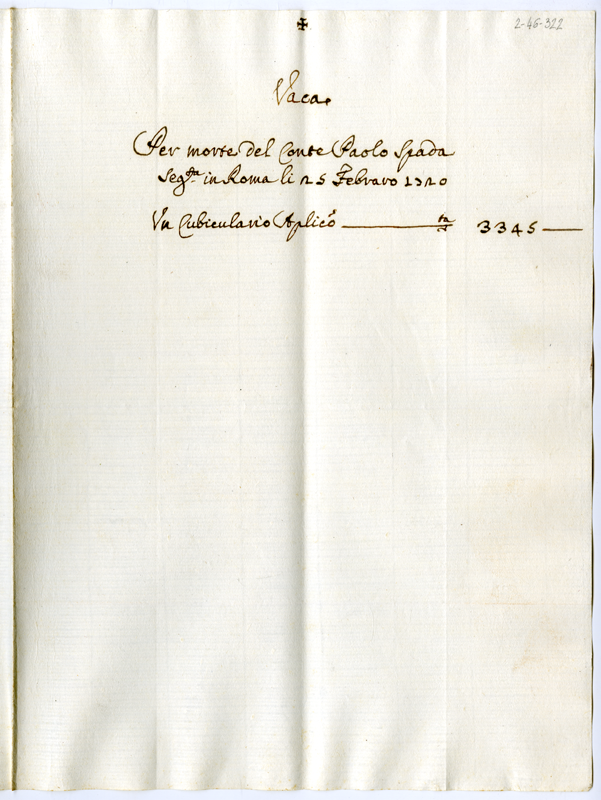 2-46-322
Vaca
Per morte del Conte Paolo Spada
seg.ta in Roma li 25 Febraro 1720
Un Cubiculario Aplico 3345